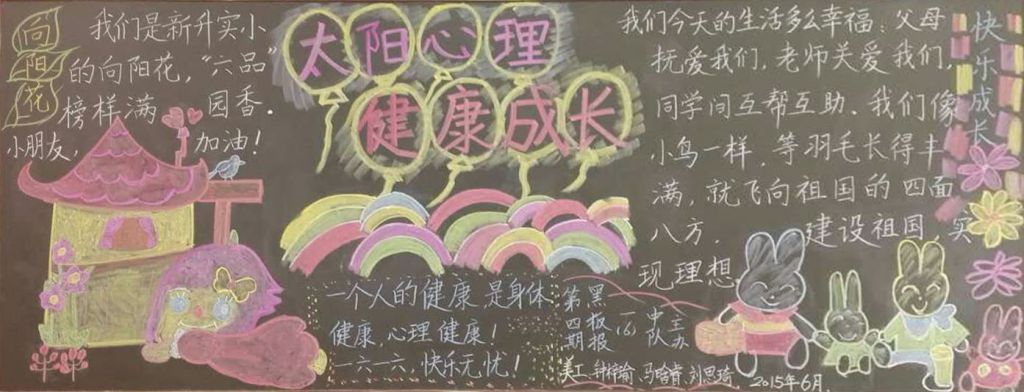 向
阳
花
我们是新升实小
的向阳花，“六品”
榜样满园香．
小朋友，加油！
太阳心理
健康成长
我们今天的生活多么幸福：父母
抚爱我们，老师关爱我们，
同学间互帮互助．我们像
小鸟一样，等羽毛长得丰
满，就飞向祖国的四面
八方．建设祖国，实
现理想
快乐成长
一个人的健康，是身体
健康，心理健康！
一六一六，快乐无忧！
第四期
黑板报
一（6）
中队
美工
2015年6月．